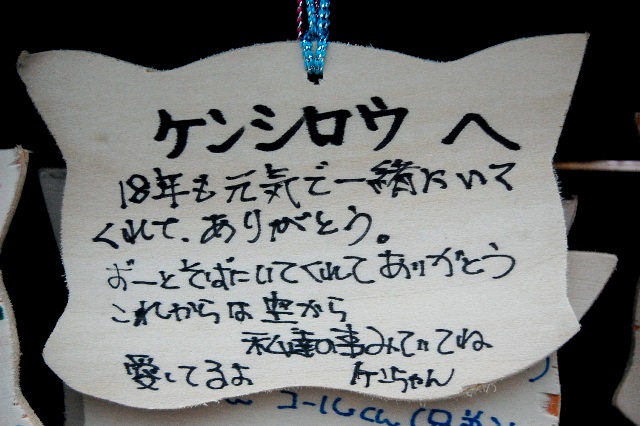 ケンシロウ へ
18年も元気で一緒にいて
くれて、ありがとう。
ずーとそばにいてくれてありがとう
これからは空から
私達の事みていてね
愛してるよ ケンちゃん